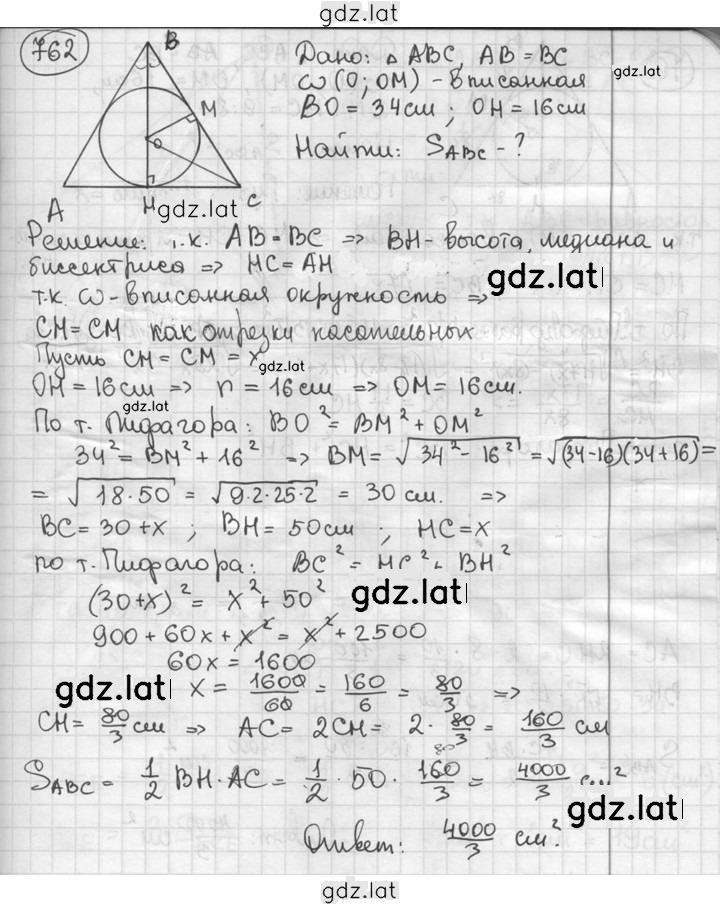 gdz.lat
762
B
M
O
A
H
C
Дано: △ ABC, AB = BC
ω (O; OM) - вписанная
BO = 34см ; OH = 16см
Найти: S_ABC - ?
gdz.lat
gdz.lat
Решение: т.к. AB = BC => BH - высота, медиана и
биссектриса => HC = AH
gdz.lat
т.к. ω - вписанная окружность =>
CH = CM как отрезки касательных
Пусть CH = CM = x
gdz.lat
OH = 16см => r = 16см => OM = 16см.
gdz.lat
По т. Пифагора: BO² = BM² + OM²
34² = BM² + 16² => BM = √34² - 16² = √(34-16)(34+16) =
= √18·50 = √9·2·25·2 = 30 см. =>
BC = 30 + x ; BH = 50см ; HC = x
по т. Пифагора: BC² = HC² + BH²
(30+x)² = x² + 50²
gdz.lat
900 + 60x + x² = x² + 2500
60x = 1600
gdz.lat
x = 1600/60 = 160/6 = 80/3 =>
CH = 80/3 см => AC = 2CH = 2 · 80/3 = 160/3 см
S_ABC = 1/2 BH · AC = 1/2 · 50 · 160/3 = 4000/3 см²
80
gdz.lat
Ответ: 4000/3 см²
gdz.lat